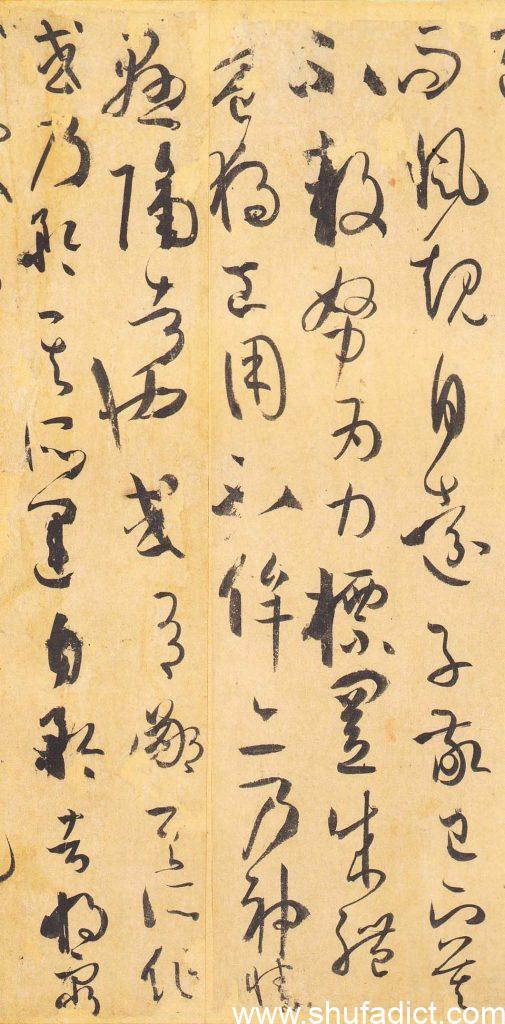 而風規自遠子敬已下莫
不鼓努為力標置成體
豈獨工用不侔亦乃神情
懸隔者也或有鄙其所作
或乃矜其所運自矜者將窮
www.shufadict.com